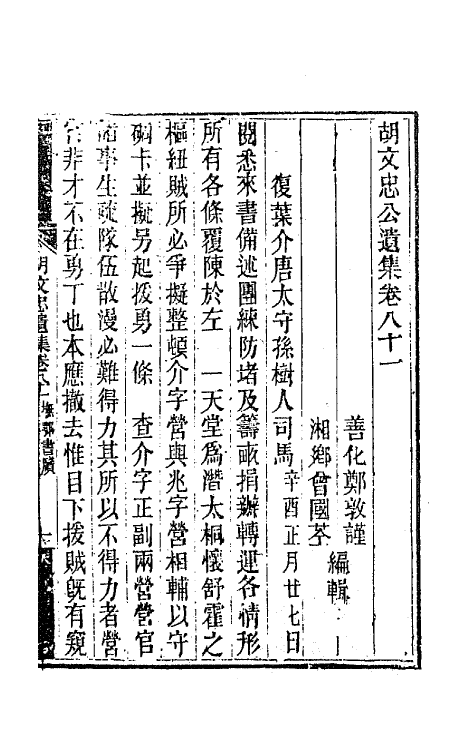 胡文忠公遺集卷八十一
善化鄭敦謹
湘鄉曾國荃
編輯
復葉介唐太守孫樹人司馬 辛酉正月廿七日
閱悉來書備述團練防堵及籌畝捐辦轉運各情形
所有各條覆陳於左　一天堂為潛太桐懷舒霍之
樞紐賊所必爭擬整頓介字營與兆字營相輔以守
碉卡並擬另起援勇一條　查介字正副兩營營官
事生疏隊伍散漫必難得力其所以不得力者營
官非才不在勇丁也本應撤去惟目下援賊既有窺
胡文忠遺集卷八十一 撫鄂書牘